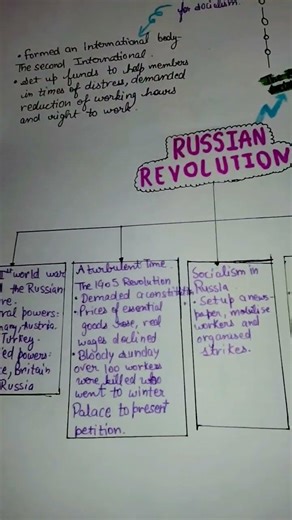 for socialism.
• formed an International body-
The second International.
• set up funds to help members
in times of distress, demanded
reduction of working hours
and right to work.
RUSSIAN
REVOLUTION
Ist world war
the Russian
Austria.
Turkey.
powers:
Britain
Russia
A turbulent Time.
The 1905 Revolution
• Demaded a constitution
• Prices of essential
goods rose, real
wages declined
• Bloody sunday
over 100 workers
were killed who
went to winter
Palace to present
petition.
Socialism in
Russia
• Set up a news-
paper, mobilise
workers and
organised
strikes.